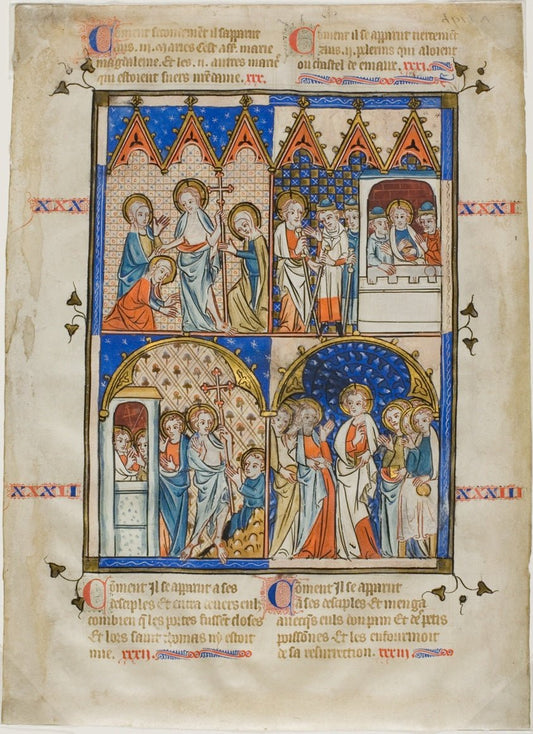 Coment secondemēt il sapparut
aus .iii. Maries Cest ass. marie
magdaleine. Et les .ii. autres marie
qui estoient suers nr̄e dame. xxx.
Coment il se apparut tiercement
aus .ii. pelerins qui aloient
ou chastel de emaux. xxxi.
XXX
XXXI
XXXII
XXXIII
Coment Il se apparut a ses
desciples Et entra devers euls
combien q̄ les portes fussēt closes
Et lors saint Thomas ny estoit
mie. xxxii.
Coment Il se apparut
a ses desciples Et menga
avecq̄s euls du pain Et de
poissōnes Et les enfourmoit
de sa resurrection. xxxiii